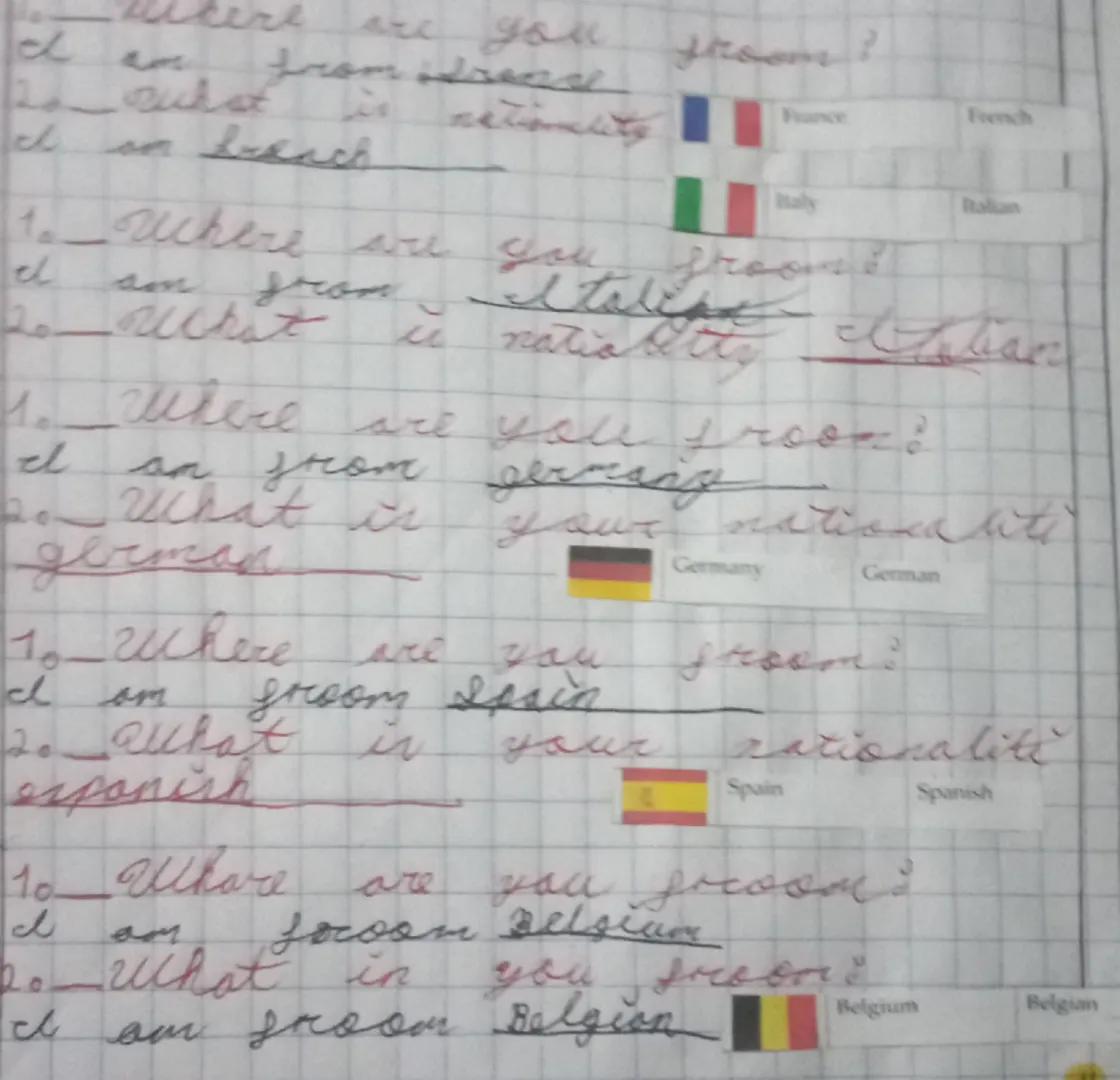 1._Where are you froom?
I am from France
2._What is nationality France French
I am french
Italy Italian
1._Where are you froom?
I am from Italian
2._What is natiality Italian
1._Where are you froom?
I am from germany
2._What is your nationaliti
german Germany German
1._Where are you froom?
I am froom Spain
2._What is your nationaliti
espanish Spain Spanish
1._Whare are you froom?
I am froom Belgium
2._What in you froom?
I am froom Belgian Belgium Belgian